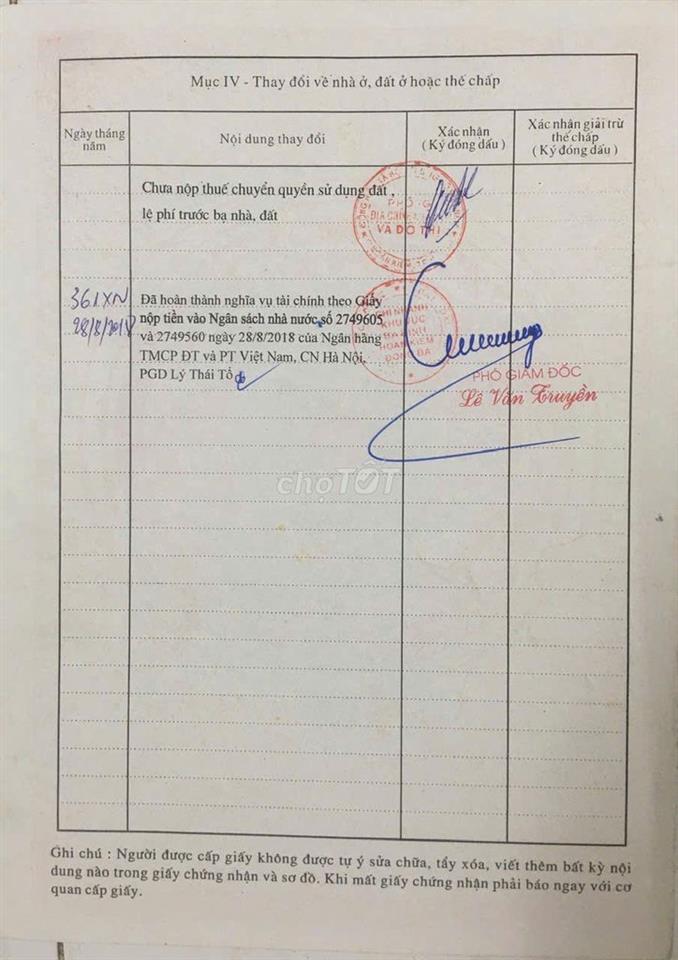 Mục IV - Thay đổi về nhà ở, đất ở hoặc thế chấp
Ngày tháng năm
Nội dung thay đổi
Xác nhận
( Ký đóng dấu )
Xác nhận giải trừ thế chấp
( Ký đóng dấu )
Chưa nộp thuế chuyển quyền sử dụng đất ,
lệ phí trước bạ nhà, đất
PHÒNG
ĐỊA CHÍNH
VÀ ĐÔ THỊ
361XN
28/8/2018
Đã hoàn thành nghĩa vụ tài chính theo Giấy
nộp tiền vào Ngân sách nhà nước số 2749605
và 2749560 ngày 28/8/2018 của Ngân hàng
TMCP ĐT và PT Việt Nam, CN Hà Nội,
PGD Lý Thái Tổ
CHI NHÁNH
KHU VỰC
BA ĐÌNH
HOÀN KIẾM
ĐỐNG ĐA
PHÓ GIÁM ĐỐC
Lê Văn Truyền
chợTỐT
Ghi chú : Người được cấp giấy không được tự ý sửa chữa, tẩy xóa, viết thêm bất kỳ nội
dung nào trong giấy chứng nhận và sơ đồ. Khi mất giấy chứng nhận phải báo ngay với cơ
quan cấp giấy.